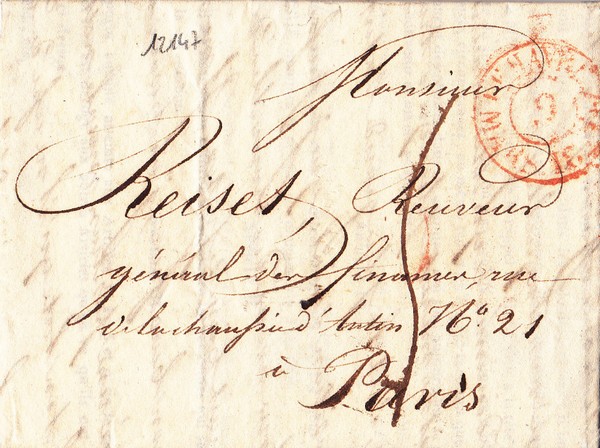 12147
Monsieur
Reiset, Receveur
général des finances, rue
de la chaussée d'Antin No. 21
à Paris